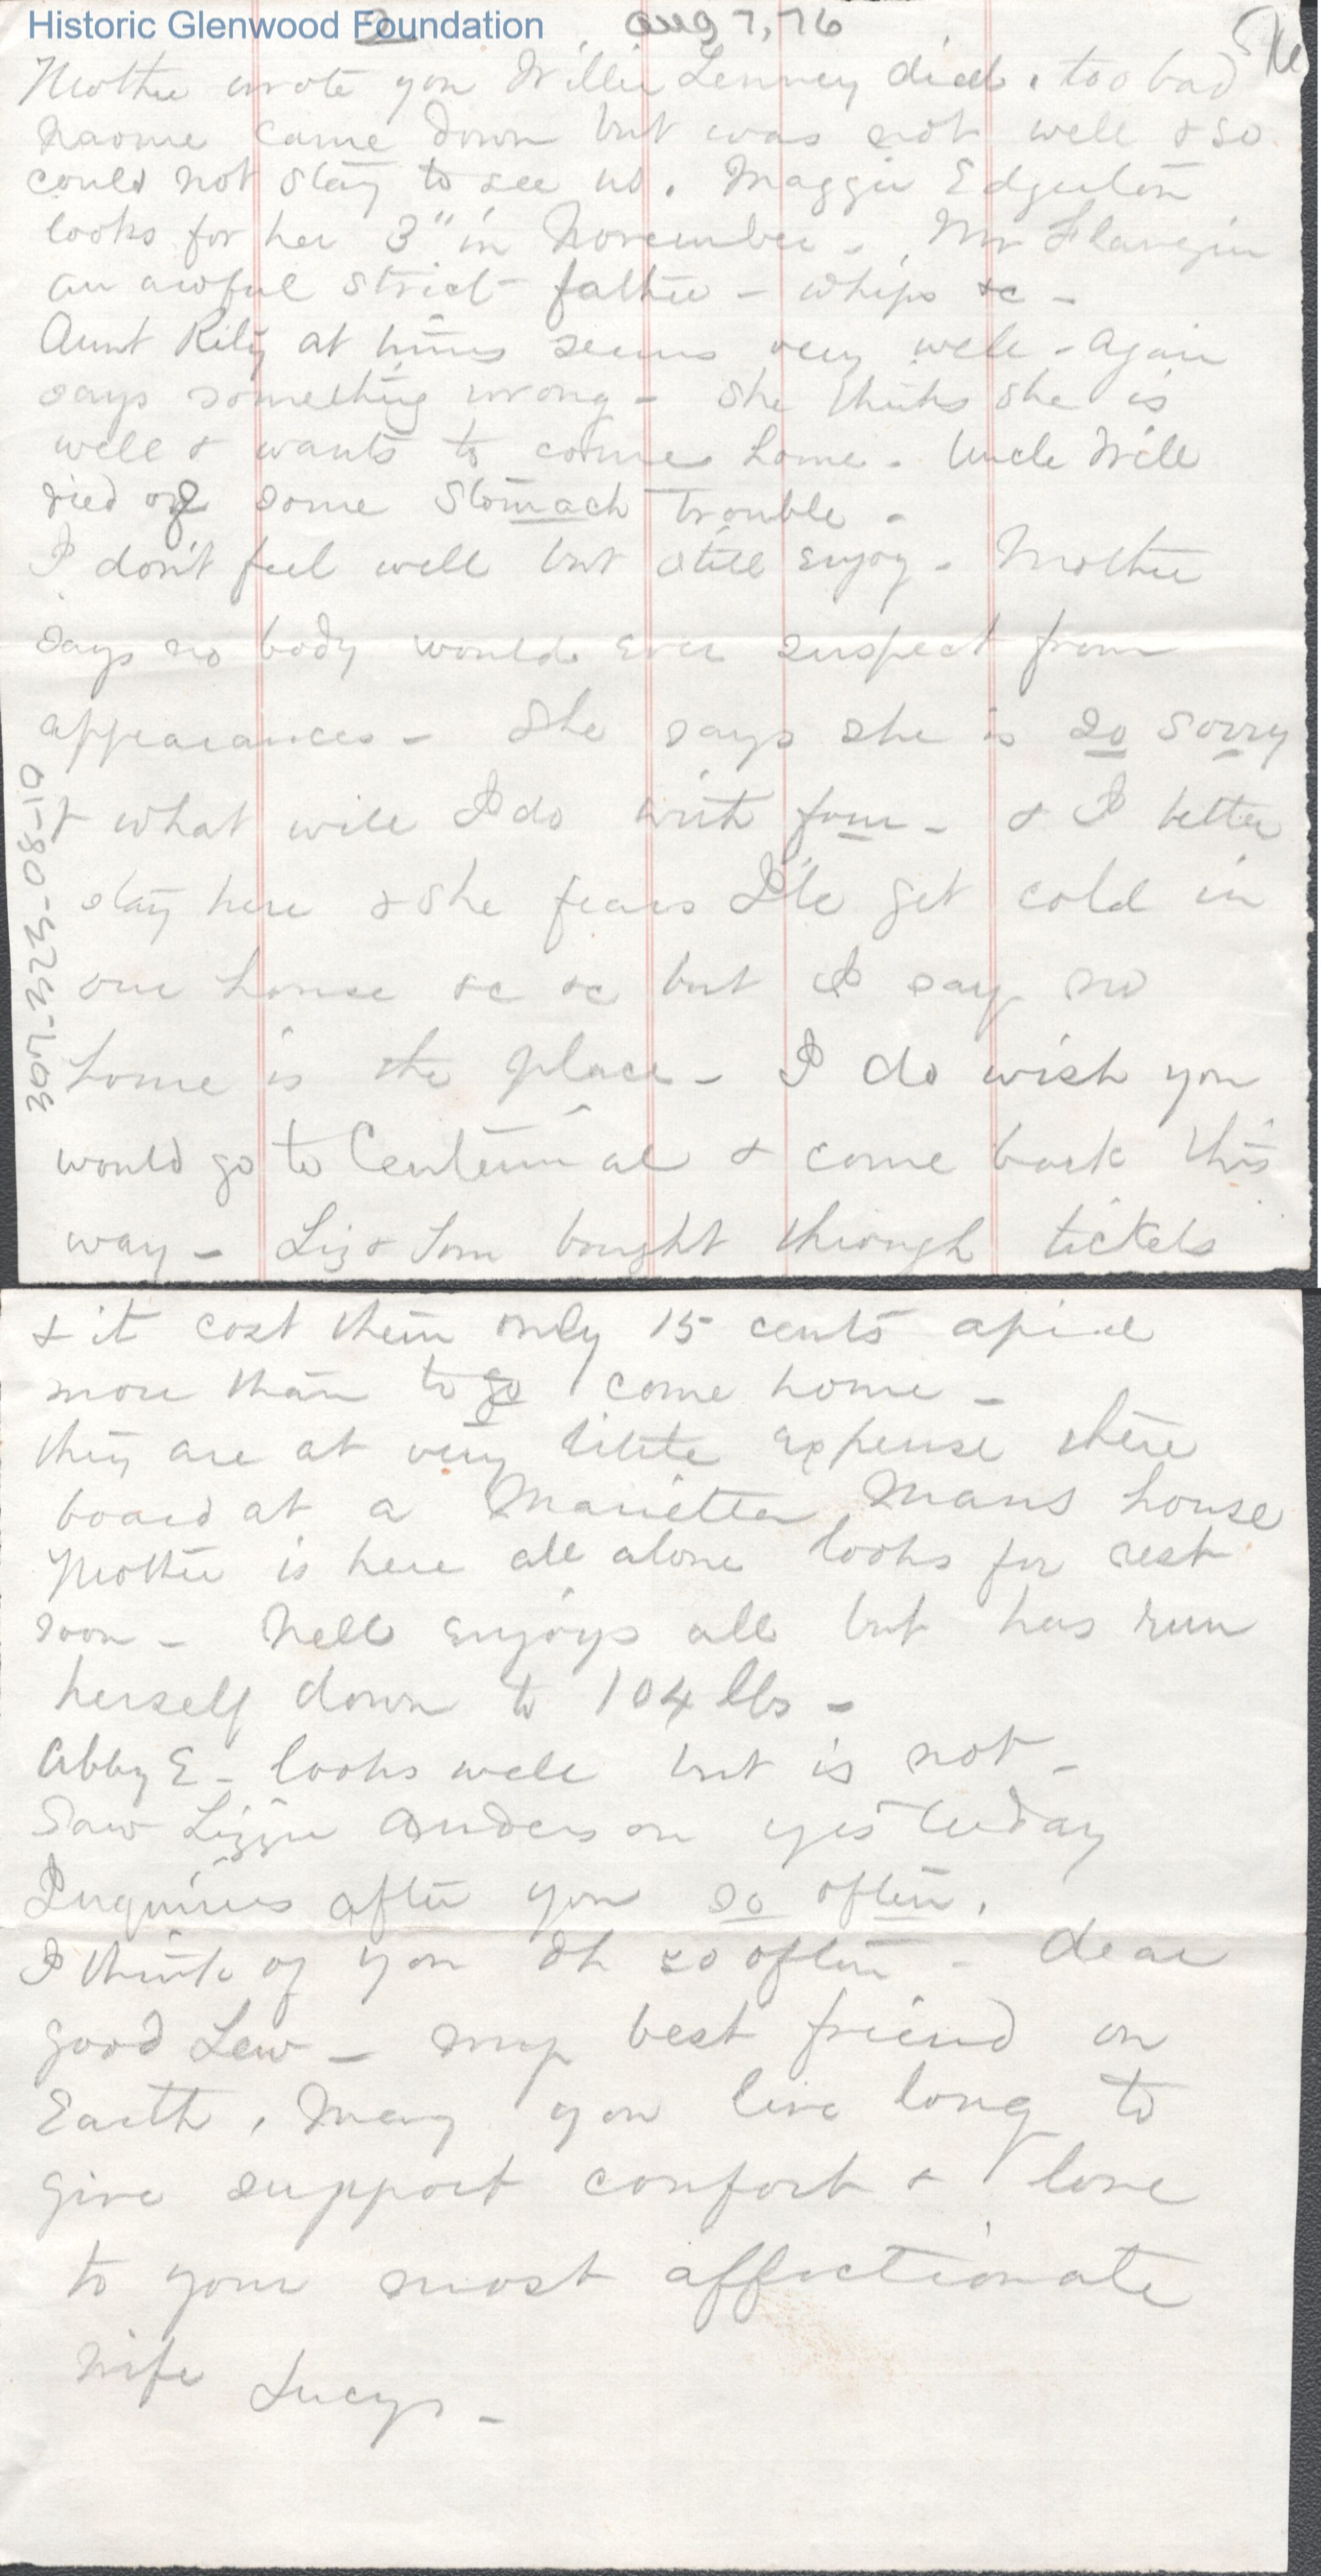 Historic Glenwood Foundation
2 Aug 7, 76
Mother wrote you Willie Lenney died. too bad
Naome came down but was not well & so
could not stay to see us. Maggie Edgerton
looks for her 3" in November - Mr
an awful strict father - whips &c -
Aunt at times seems very well - again
says something wrong - she thinks she is
well & wants to come home. Uncle Will
died of some stomach trouble -
I don't feel well but still enjoy - Mother
says no body would ever suspect from
appearances - She says she is so sorry
& what will I do with four - & I better
stay here & she fears I'le get cold in
our house &c &c but I say no
home is the place - I do wish you
would go to Centennial & come back this
way - Liz & Tom bought through tickets
307-323-08-10
& it cost them only 15 cents apiece
more than to go come home -
they are at very little expense there
board at a Marietta Mans house
Mother is here all alone looks for rest
soon - Nell enjoys all but has run
herself down to 104 lbs -
Abby E - looks well but is not -
Saw Lizzie Anderson yesterday
Inquires after you so often.
I think of you Oh so often - dear
good Lew - my best friend on
Earth, May you live long to
give support comfort & love
to your most affectionate
Wife Lucy -